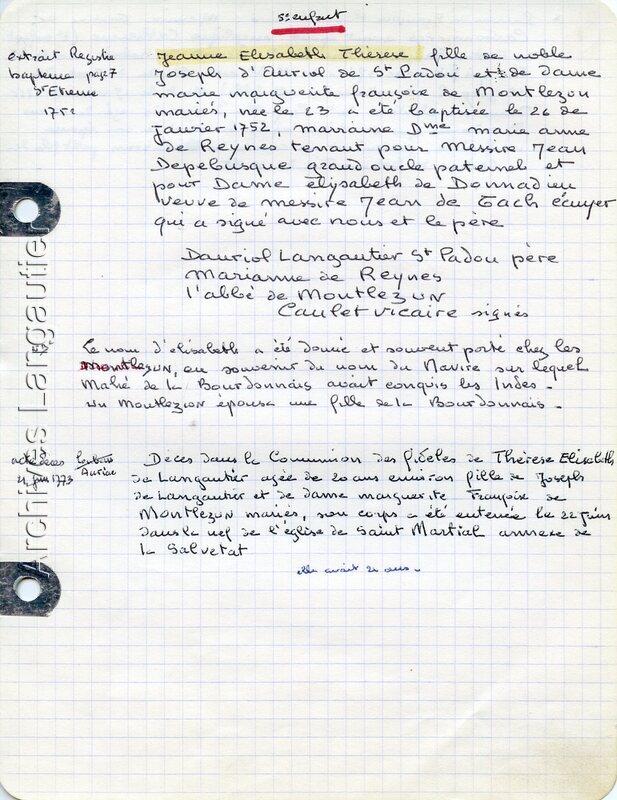 5e enfant
extrait Registre
bapteme page 7
d'Etienne
1752
Jeanne Elisabeth Thérèse fille de noble
Joseph d'Auriol de St Padou et de Dame
marie marguerite françoise de Montlezon
mariés, née le 23 a été baptisée le 26 de
Janvier 1752, marraine Dme marie anne
de Reynes tenant pour messire Jean
Depebusque grand oncle paternel et
pour Dame élysabeth de Donnadieu
veuve de messire Jean de Gach écuyer
qui a signé avec nous et le père
Dauriol Langautier St Padou père
Marianne de Reynes
l'abbé de Montlezun
Caulet vicaire signés
Le nom d'élisabeth a été donné et souvent porté chez les
Montlezun, en souvenir du nom du Navire sur lequel
Mahé de la Bourdonnais avait conquis les Indes.
un Montlezun épousa une fille de la Bourdonnais.
acte deces
Auriac
21 juin 1773
Deces dans la Commuion des fideles de Thérèse Elisabeth
de Langautier agée de 20 ans environ fille de Joseph
de Langautier et de dame marguerite Françoise de
Montlezun mariés, son corps a été enterrée le 22 juin
dans la nef de l'église de Saint Martial annexe de
la Salvetat
elle avait 21 ans.
Archives Langautier